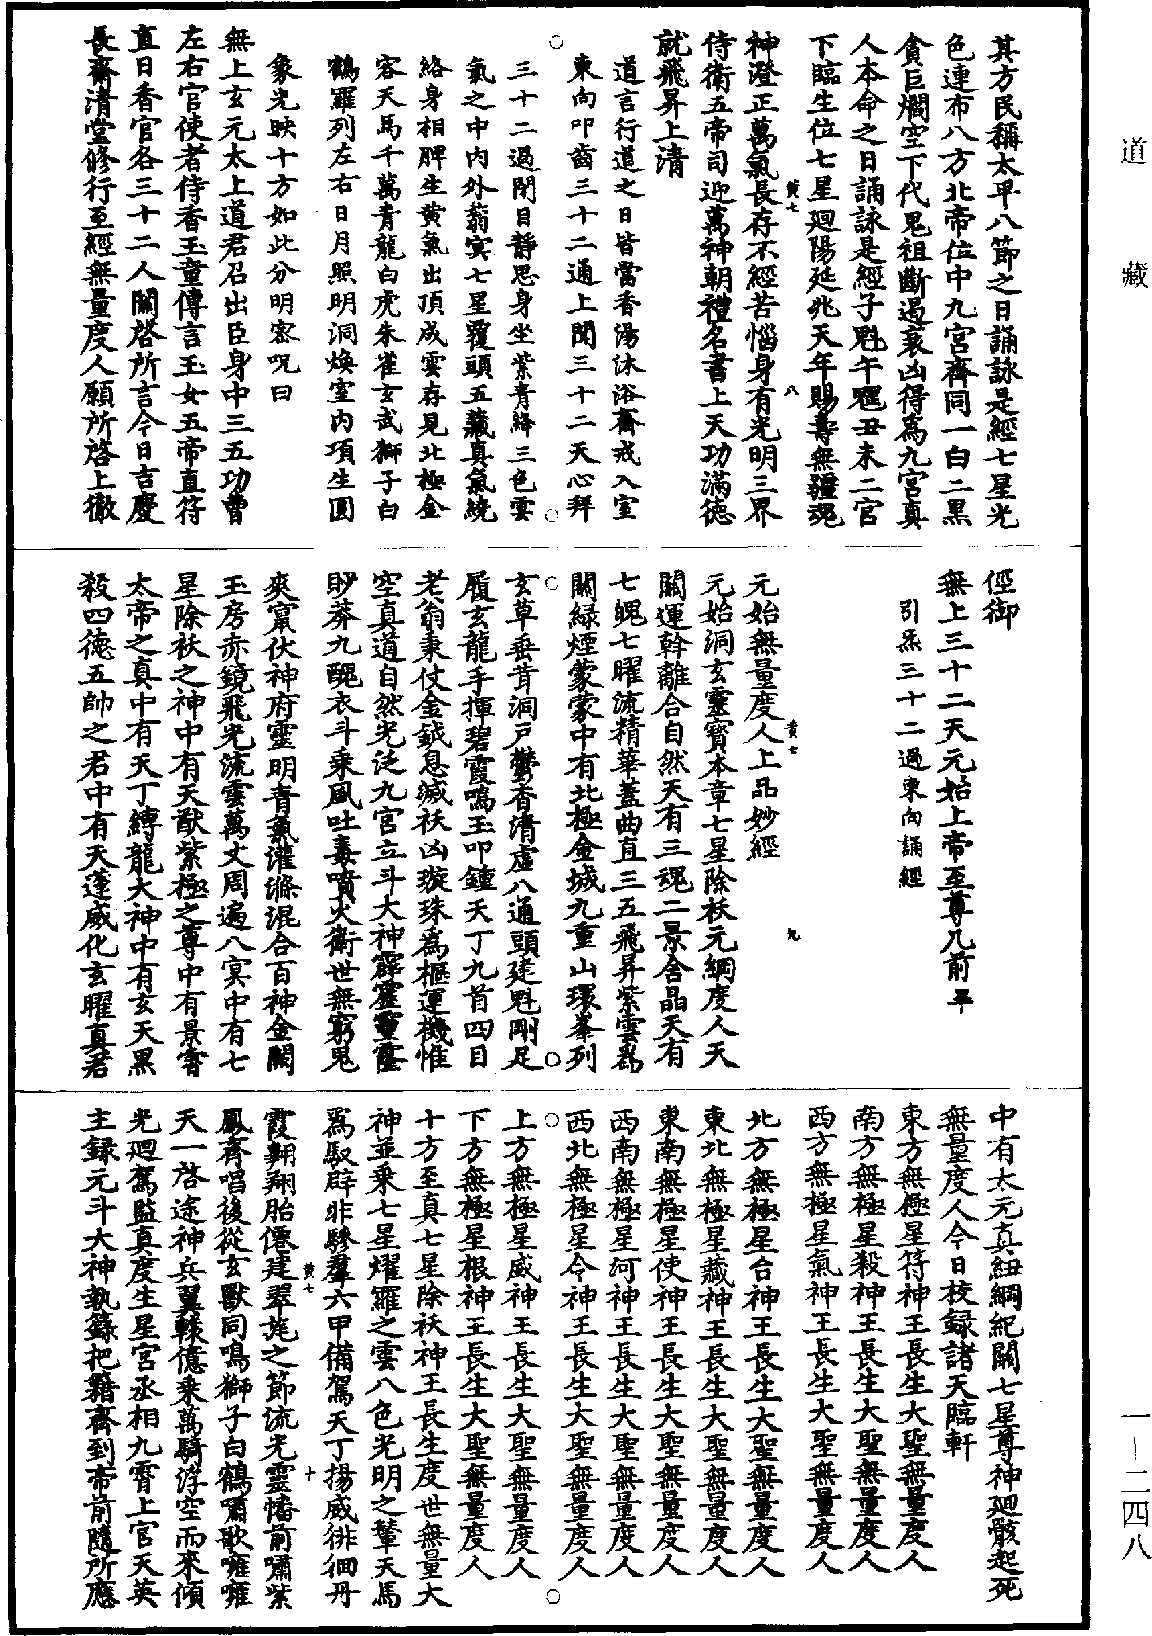 道藏
其方民稱太平八節之日誦詠是經七星光
色連布八方北帝位中九宮齊同一白二黑
貪巨爛空下代鬼祖斷遏衰凶得為九宮真
人本命之日誦詠是經子魁午魒丑未二宮
下臨生位七星迴陽延兆天年賜壽無彊魂
黃七 八
神澄正萬氣長存不經苦惱身有光明三界
侍衛五帝司迎萬神朝禮名書上天功滿德
就飛昇上清
道言行道之日皆當香湯沐浴齋戒入室
東向叩齒三十二通上聞三十二天心拜
三十二過閉目靜思身坐紫青絳三色雲
氣之中內外蓊冥七星覆頭五藏真氣繞
絡身相脾生黃氣出頂成雲存見北極金
容天馬千萬青龍白虎朱雀玄武獅子白
鶴羅列左右日月照明洞煥室內項生圓
象光映十方如此分明密呪曰
無上玄元太上道君召出臣身中三五功曹
左右官使者侍香玉童傳言玉女五帝直符
直日香官各三十二人關啓所言今日吉慶
長齋清堂修行至經無量度人願所啓上徹
徑御
無上三十二天元始上帝至尊几前 平
引炁三十二過東向誦經
黃七 九
元始無量度人上品妙經
元始洞玄靈寶本章七星除祅元綱度人天
關運幹離合自然天有三魂二景舍晶天有
七魄七曜流精華蓋曲直三五飛昇紫雲為
關綠煙蒙蒙中有北極金城九重山環峯列
玄草垂茸洞戶鬱香清虛八通頭建魁剛足
履玄龍手揮碧霞鳴玉叩鐘天丁九首四目
老翁秉仗金鉞息滅祅凶璇珠為樞運機惟
空真道自然光泛九宮立斗大神霹靂
眇莽九醜衣斗乘風吐毒噴火衛世無窮鬼
爽竄伏神府靈明青氣灌滌混合百神金闕
玉房赤鏡飛光流雲萬丈周遍八冥中有七
星除祅之神中有天猷紫極之尊中有景霄
太帝之真中有天丁縛龍大神中有玄天黑
殺四德五帥之君中有天蓬威化玄曜真君
中有太元真紐綱紀關七星尊神迴骸起死
無量度人今日校錄諸天臨軒
東方無極星符神王長生大聖無量度人
南方無極星殺神王長生大聖無量度人
西方無極星氣神王長生大聖無量度人
北方無極星合神王長生大聖無量度人
東北無極星藏神王長生大聖無量度人
東南無極星使神王長生大聖無量度人
西南無極星河神王長生大聖無量度人
西北無極星令神王長生大聖無量度人
上方無極星威神王長生大聖無量度人
下方無極星根神王長生大聖無量度人
十方至真七星除祅神王長生度世無量大
神並乘七星耀羅之雲八色光明之輦天馬
為馭辟非驂羣六甲備駕天丁揚威徘徊丹
黃七 十
霞翱翔胎僊建翠旄之節流光靈幡前嘯紫
鳳齊唱後從玄獸同鳴獅子白鶴嘯歌嗈嗈
天一啓途神兵翼轅億乘萬騎浮空而來傾
光迴駕監真度生星宮丞相九霄上官天英
主錄元斗大神執籙把籍齋到帝前隨所應
一－二四八